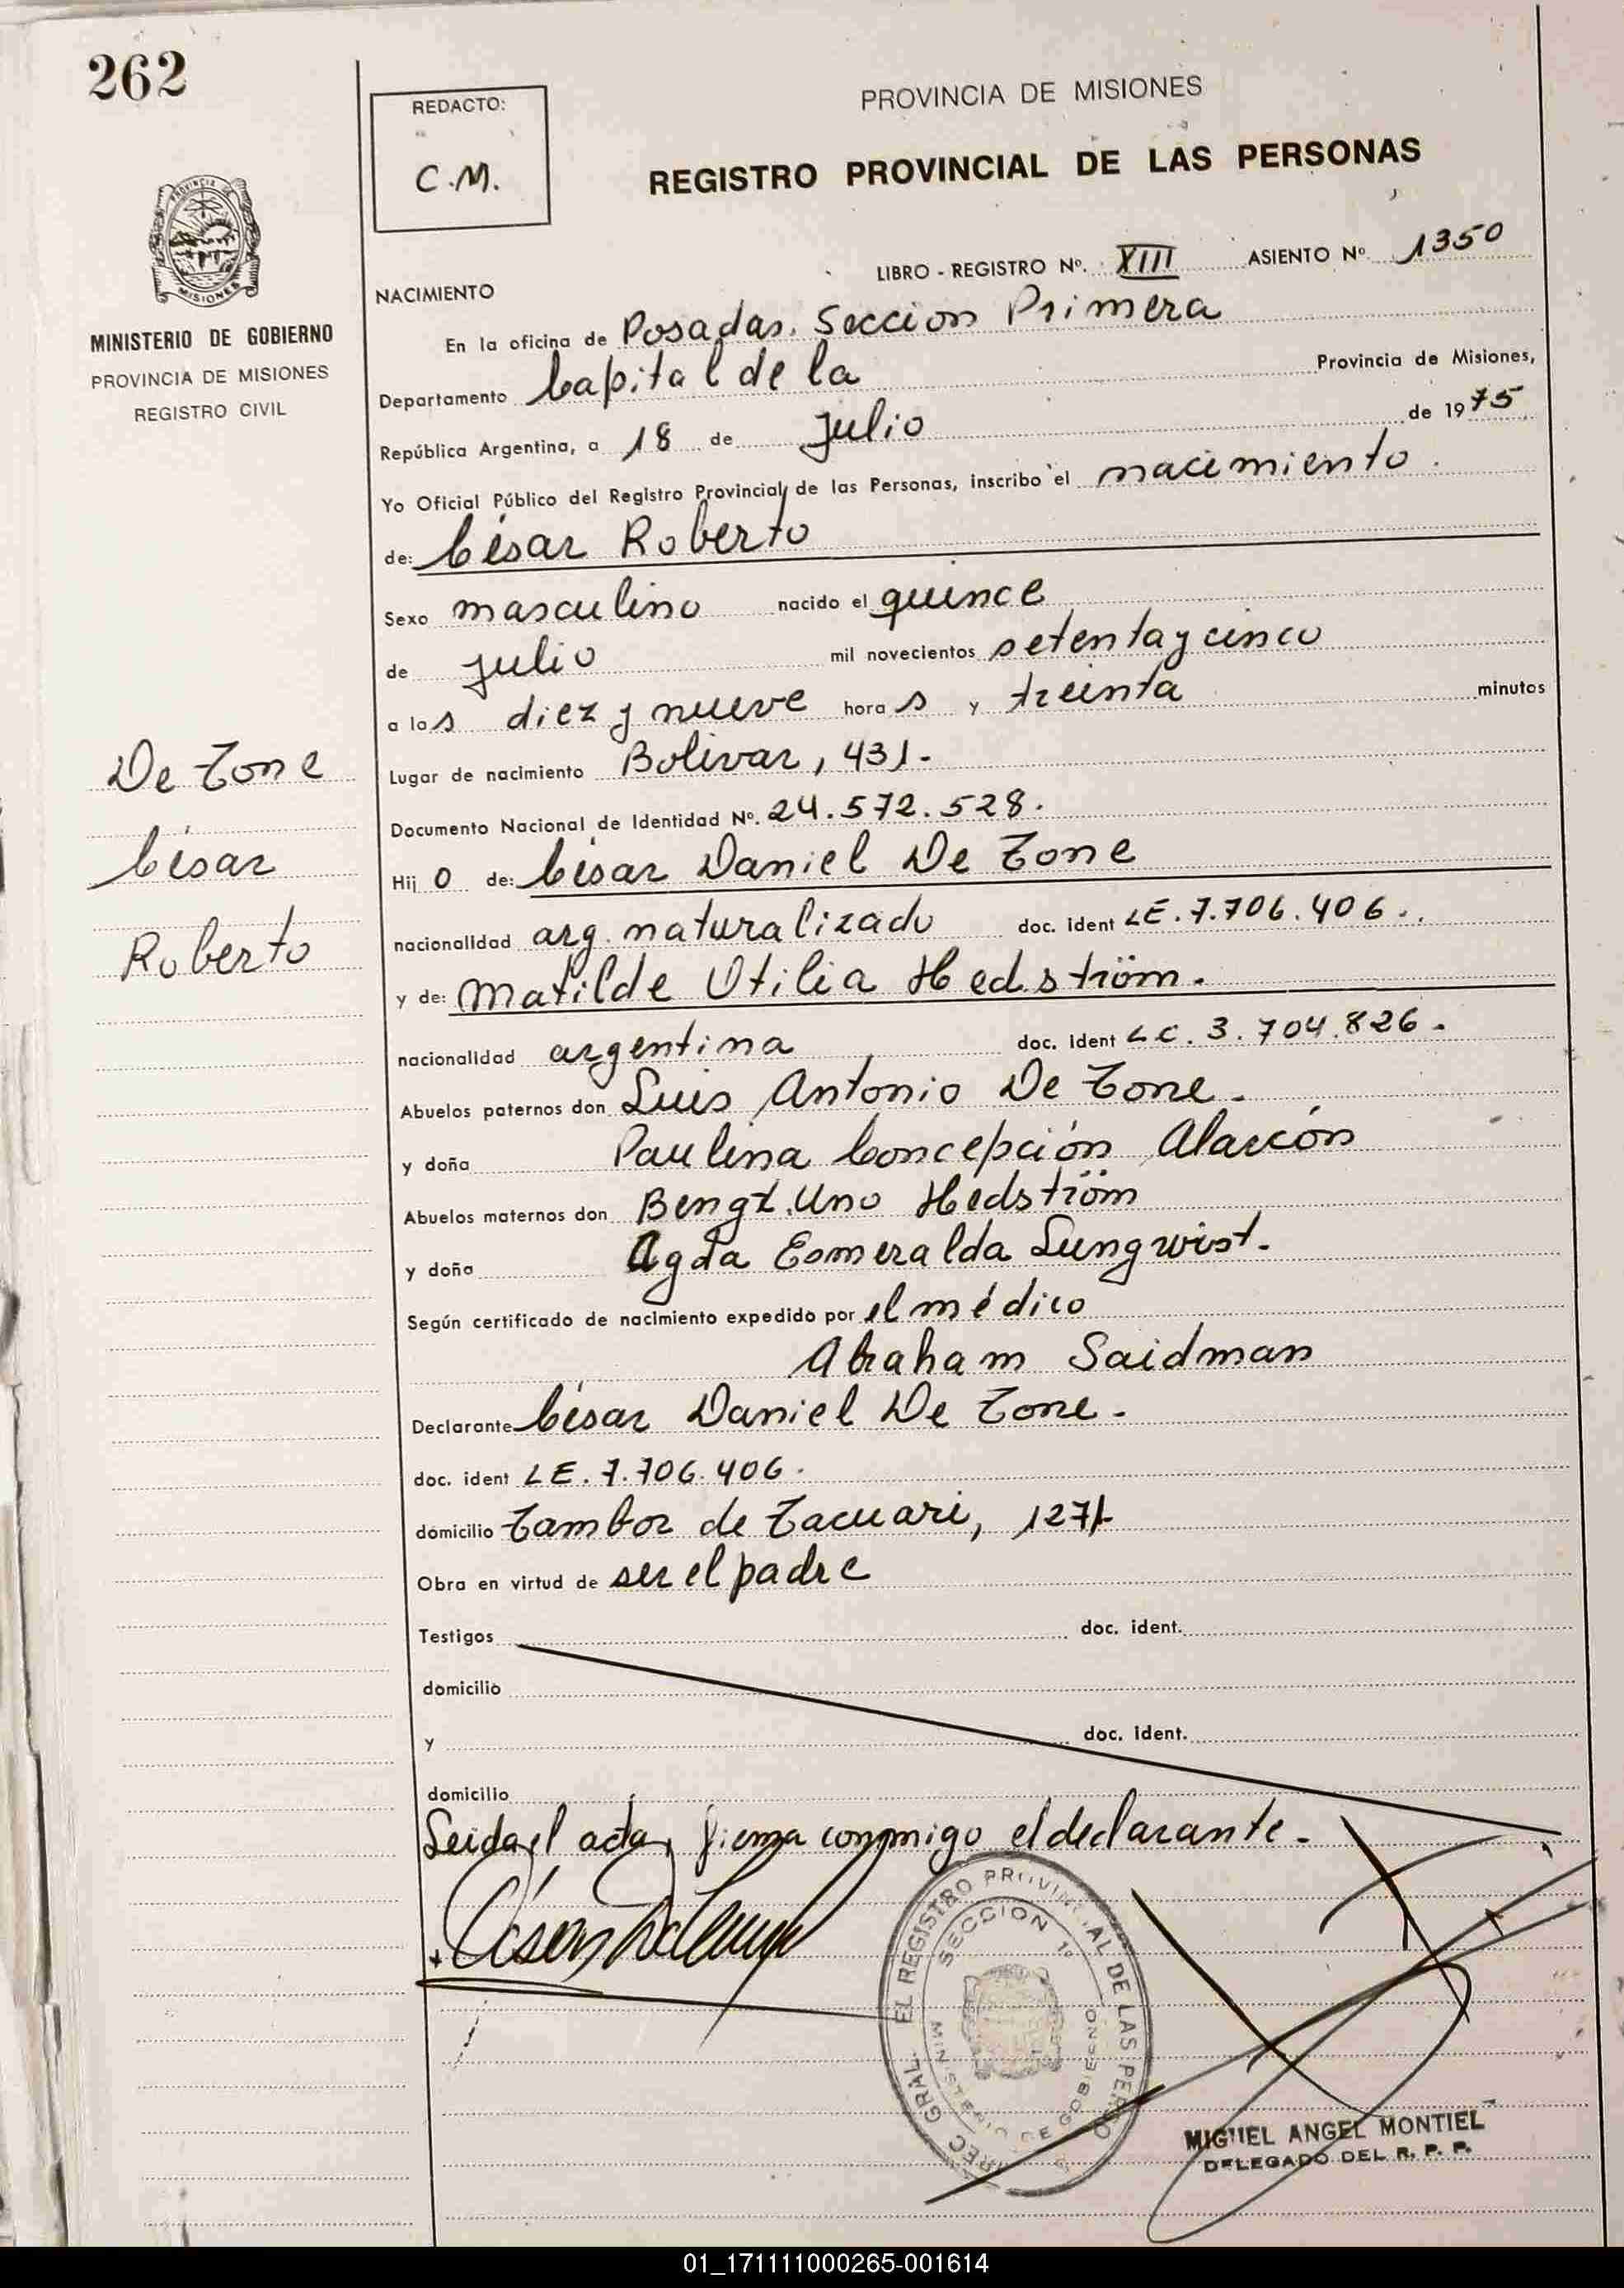 262
REDACTO:
C.M.
PROVINCIA DE MISIONES
REGISTRO PROVINCIAL DE LAS PERSONAS
LIBRO - REGISTRO Nº. XIII ASIENTO Nº 1350
PROVINCIA DE
MISIONES
MINISTERIO DE GOBIERNO
PROVINCIA DE MISIONES
REGISTRO CIVIL
NACIMIENTO
En la oficina de Posadas. Seccion Primera
Departamento Capital de la Provincia de Misiones,
República Argentina, a 18 de Julio de 1975
Yo Oficial Público del Registro Provincial de las Personas, inscribo el nacimiento.
de: César Roberto
Sexo masculino nacido el quince
de julio mil novecientos setenta y cinco
a las diez y nueve horas y treinta minutos
Lugar de nacimiento Bolivar, 431.-
Documento Nacional de Identidad Nº. 24.572.528.
De Tone
César
Roberto
Hijo de: César Daniel De Tone
nacionalidad arg. naturalizado doc. ident LE. 7.706.406.
y de: Matilde Otilia Hedström.
nacionalidad argentina doc. ident LC. 3.704.826.
Abuelos paternos don Luis Antonio De Tone.
y doña Paulina Concepción Alarcón
Abuelos maternos don Bengt Uno Hedström
y doña Agda Esmeralda Lungwist.
Según certificado de nacimiento expedido por el médico
Abraham Saidman
Declarante César Daniel De Tone.
doc. ident LE. 7.706.406.
domicilio Tambor de Tacuari, 1271
Obra en virtud de ser el padre
Testigos doc. ident.
domicilio
y doc. ident.
domicilio
Leida el acta, firma conmigo el declarante.
EL REGISTRO PROVINCIAL DE LAS
SECCION 1º
MINISTERIO DE GOBIERNO
MIGUEL ANGEL MONTIEL
DELEGADO DEL R. P. P.
01_171111000265-001614